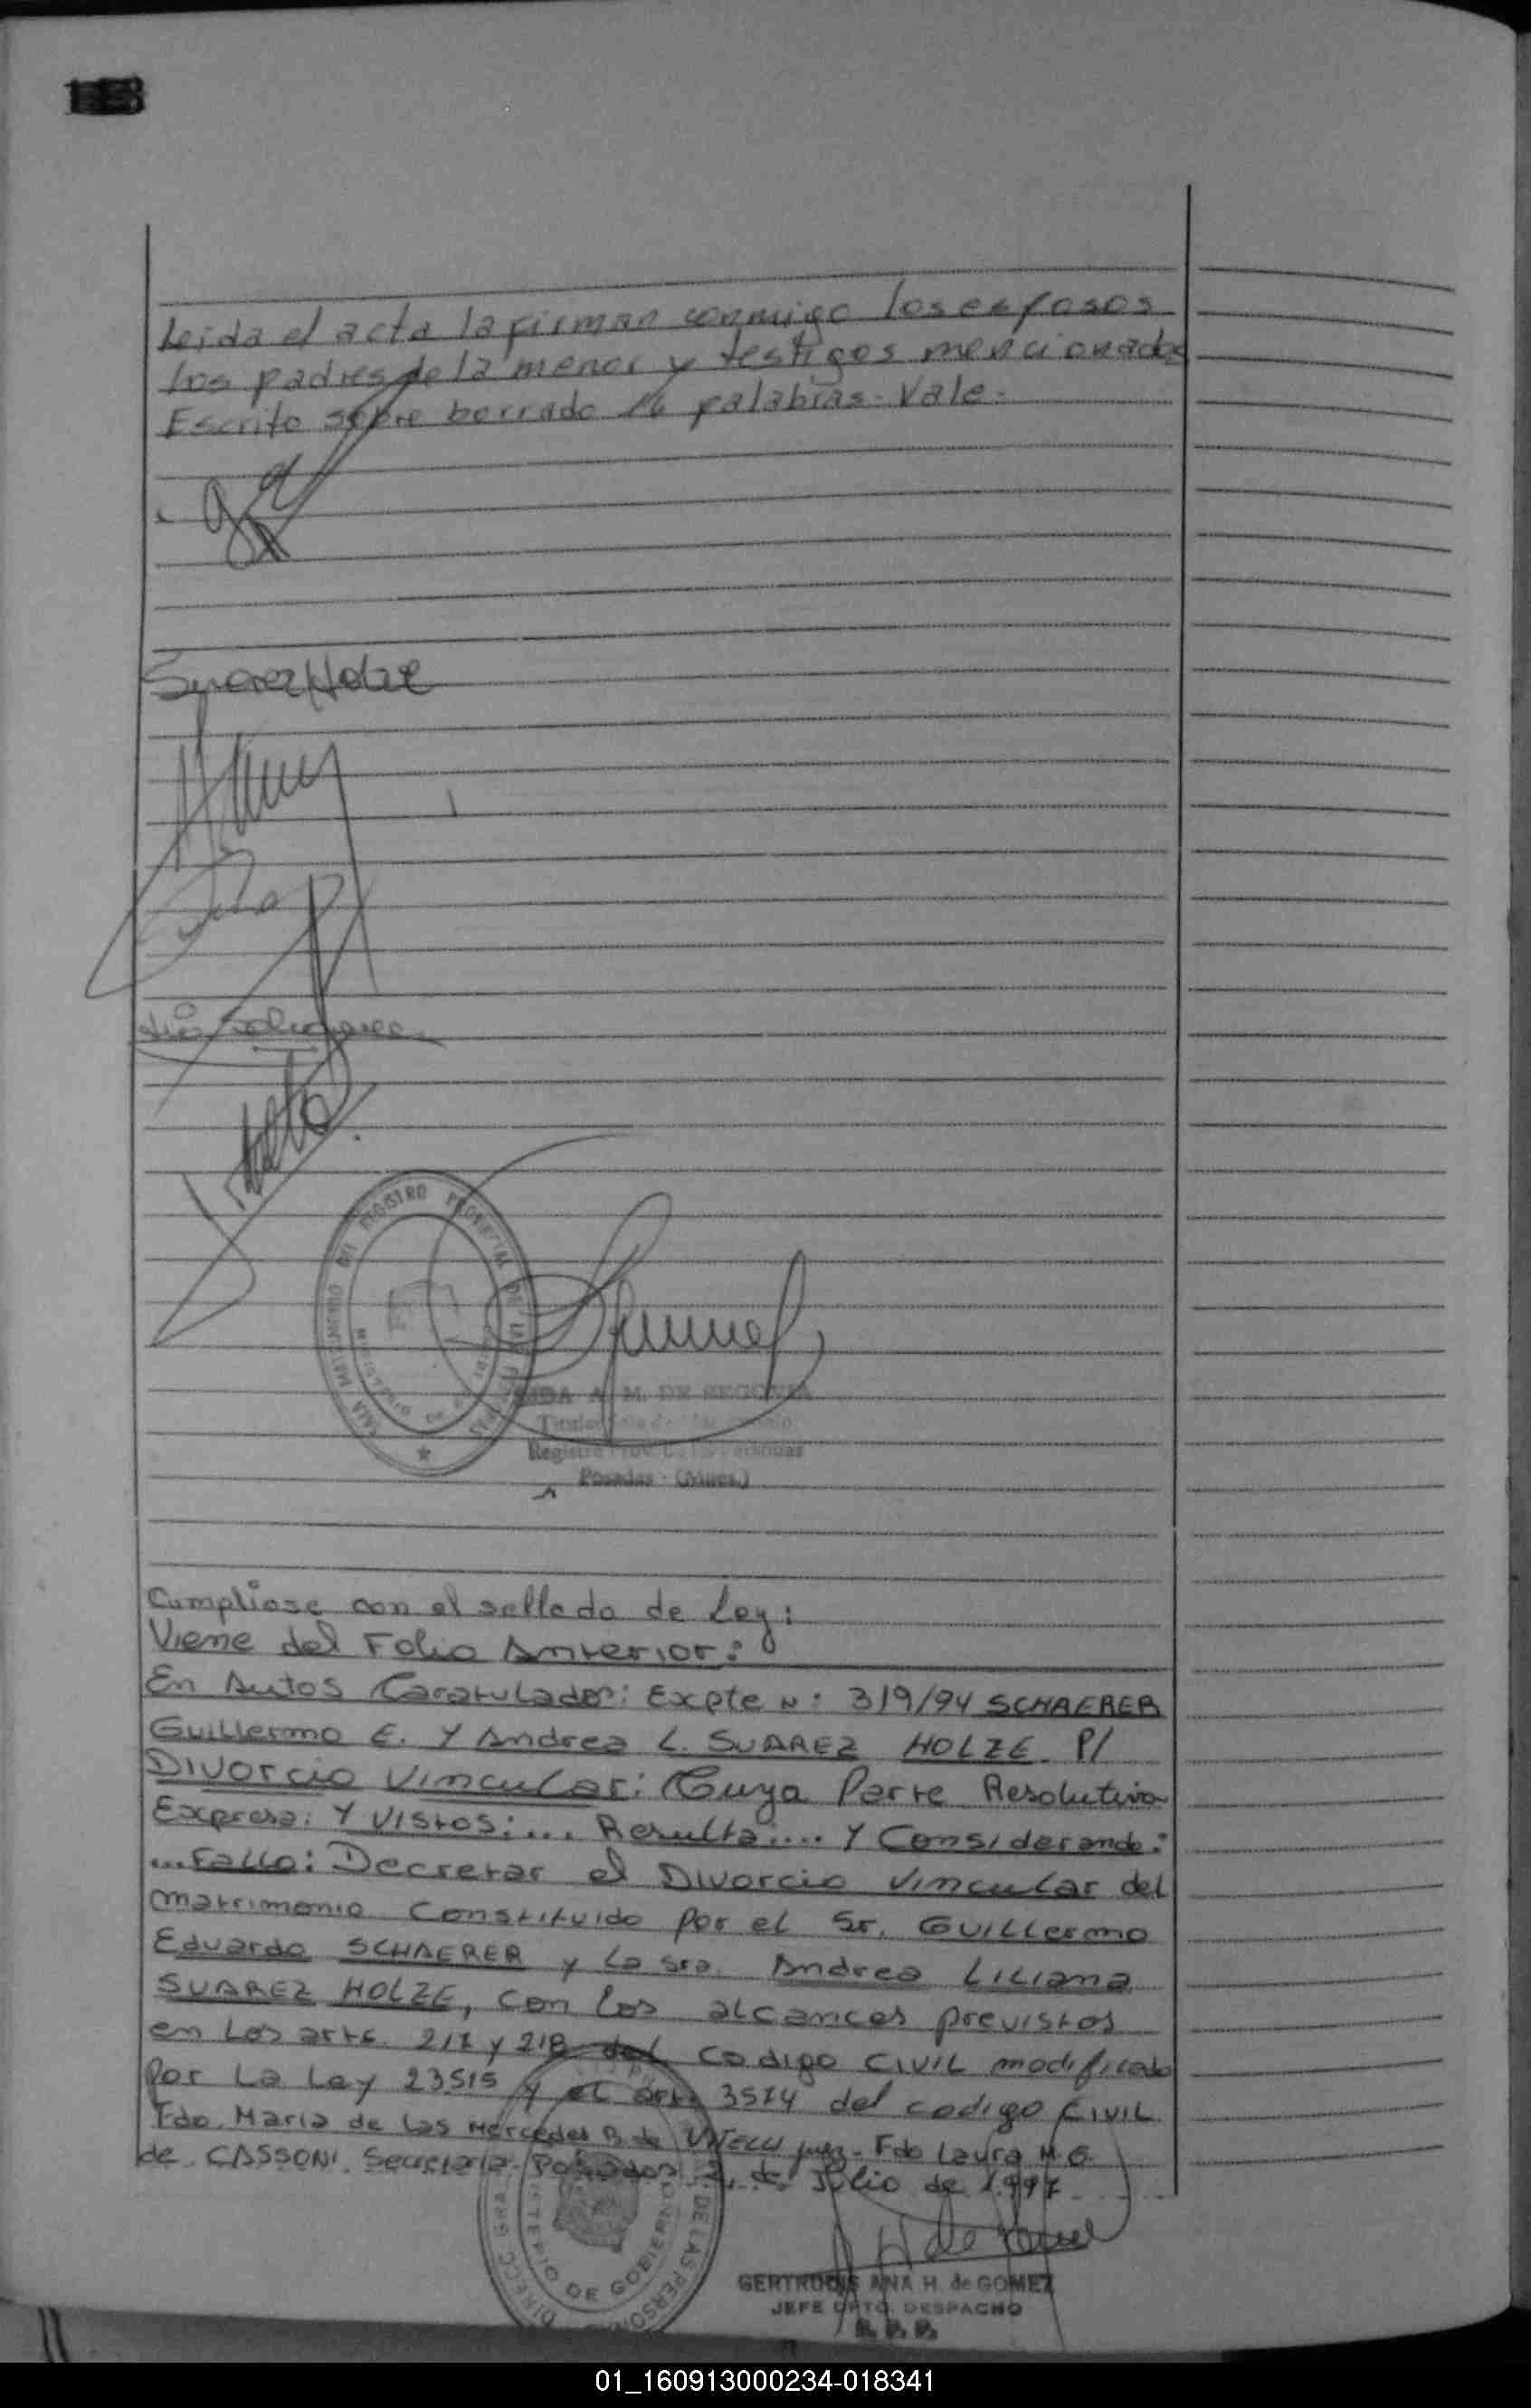 Leida el acta la firman conmigo los esposos
los padres de la menor y testigos mencionados
Escrito sobre borrado 16 palabras - Vale -
Suarez Holze
REGISTRO PROVINCIAL DE LAS PERSONAS
A. M. DE SEGOVIA
Titular
Registro Prov. de las Personas
Posadas - (Mnes.)
Cumpliose con el sellado de Ley:
Viene del Folio Anterior:
En Autos Caratulados: Expte N: 319/94 SCHAERER
Guillermo E. Y Andrea L. SUAREZ HOLZE P/
Divorcio Vincular: Cuya Parte Resolutiva
Expresa: Y Vistos:... Resulta.... Y Considerando:
...Fallo: Decretar el Divorcio Vincular del
matrimonio Constituido por el Sr. Guillermo
Eduardo SCHAERER y La Sra. Andrea Liliana
SUAREZ HOLZE, con los alcances previstos
en Los arts. 217 y 218 del codigo civil modificado
Por La Ley 23515 y el art. 3574 del codigo civil
Fdo. Maria de Las Mercedes B. de juez - Fdo Laura M. G.
de CASSONI. Secretaria. Posadas 2, de Julio de 1.997
DE LAS PERSONAS
MINISTERIO DE GOBIERNO
GERTRUDIS ANA H. de GOMEZ
JEFE DPTO. DESPACHO
R. P. P.
01_160913000234-018341